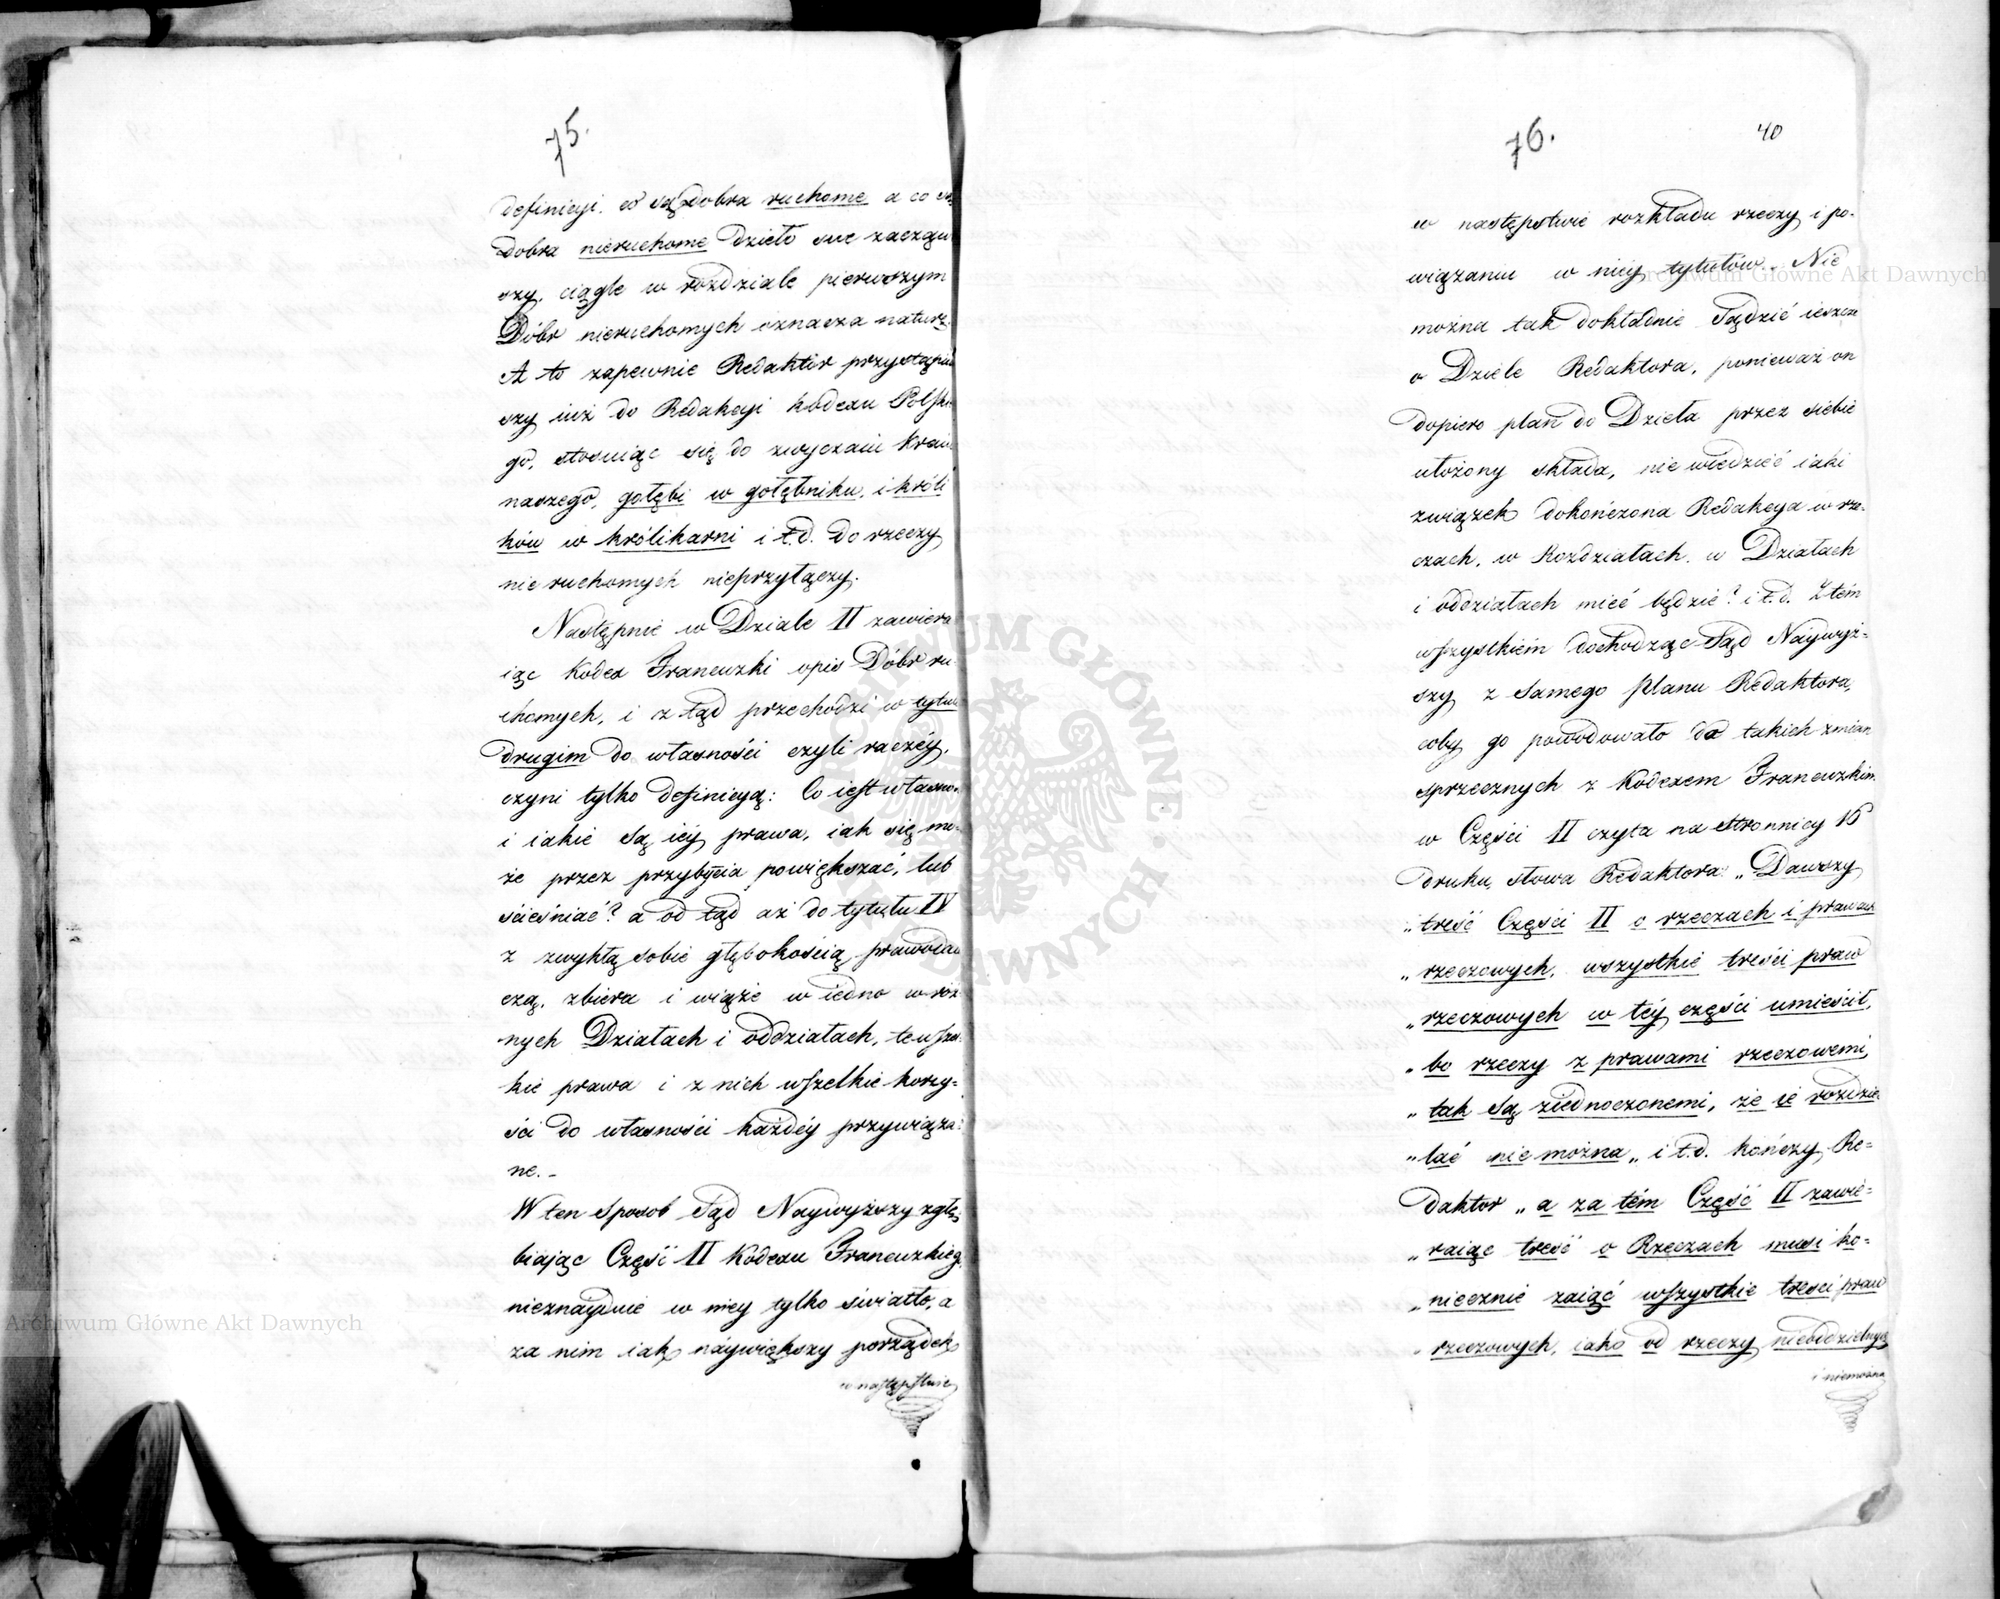 75.
definicyi. co są dobra ruchome a co są
Dobra nieruchome Dzieło swe zacząw
szy, ciągle w rozdziale pierwszym
Dóbr nieruchomych oznacza naturę.
A to zapewnie Redaktor przystąpiw
szy iuż do Redakcyi Kodexu Polskie
go, stosuiąc się do zwyczaiu kraiu
naszego, gołębi w gołębniku, i króli
ków w królikarni i t.d. do rzeczy
nieruchomych nieprzyłączy.
Następnie w Dziale II zawiera
iąc Kodex Francuzki opis Dóbr ru
chomych, i z tąd przechodzi w tytule
drugim do własności czyli raczéy,
czyni tylko definicyą: Co iest własno
i iakie są iéy prawa, iak się mo-
że przez przybycia powiększać, lub
ścieśniać? a od tąd aż do tytułu IV
z zwykłą sobie głębokością prawodaw
czą, zbiera i wiąże w iedno w róż
nych Działach i oddziałach, te wszel
kie prawa i z nich wszelkie korzy-
ści do własności każdéy przywiąza-
ne.-
W ten sposob Sąd Naywyższy zgłę
biając Część II Kodexu Francuzkieg
nieznayduie w niey tylko światło, a
za nim iak náywiększy porządek
w następstwie
Archiwum Główne Akt Dawnych
76.
40
w następstwie rozkładu rzeczy i po-
wiązaniu w niéy tytułów. Nie
Archiwum Główne Akt Dawnych
można tak dokładnie Sądzić ieszcze
o Dziele Redaktora, ponieważ on
dopiero plan do Dzieła przez siebie
ułożony składa, nie wiedzieć iaki
związek dokończona Redakcya w rze-
czach, w Rozdziałach, w Działach
i oddziałach mieć będzie? i t.d. Z tém
wszystkiém dochodząc Sąd Naywyż-
szy z samego planu Redaktora,
coby go powodowało do takich zmian
sprzecznych z Kodexem Francuzkim
w Części II czyta na stronnicy 16
druku, słowa Redaktora: „Dawszy
„treść Części II o rzeczach i prawach
„rzeczowych, wszystkie treści praw
„rzeczowych w téy części umieścił,
„bo rzeczy z prawami rzeczowemi,
„tak są ziednoczonemi, że ie rozdzie
„lać nie można„ i t.d. kończy Re-
daktor „a za tém Część II zawie-
„raiąc treść o Rzeczach musi ko-
„niecznie zaiąć wszystkie treści praw
„rzeczowych, iako od rzeczy nieoddzielnych
i niemożna
ARCHIWUM GŁÓWNE AKT DAWNYCH